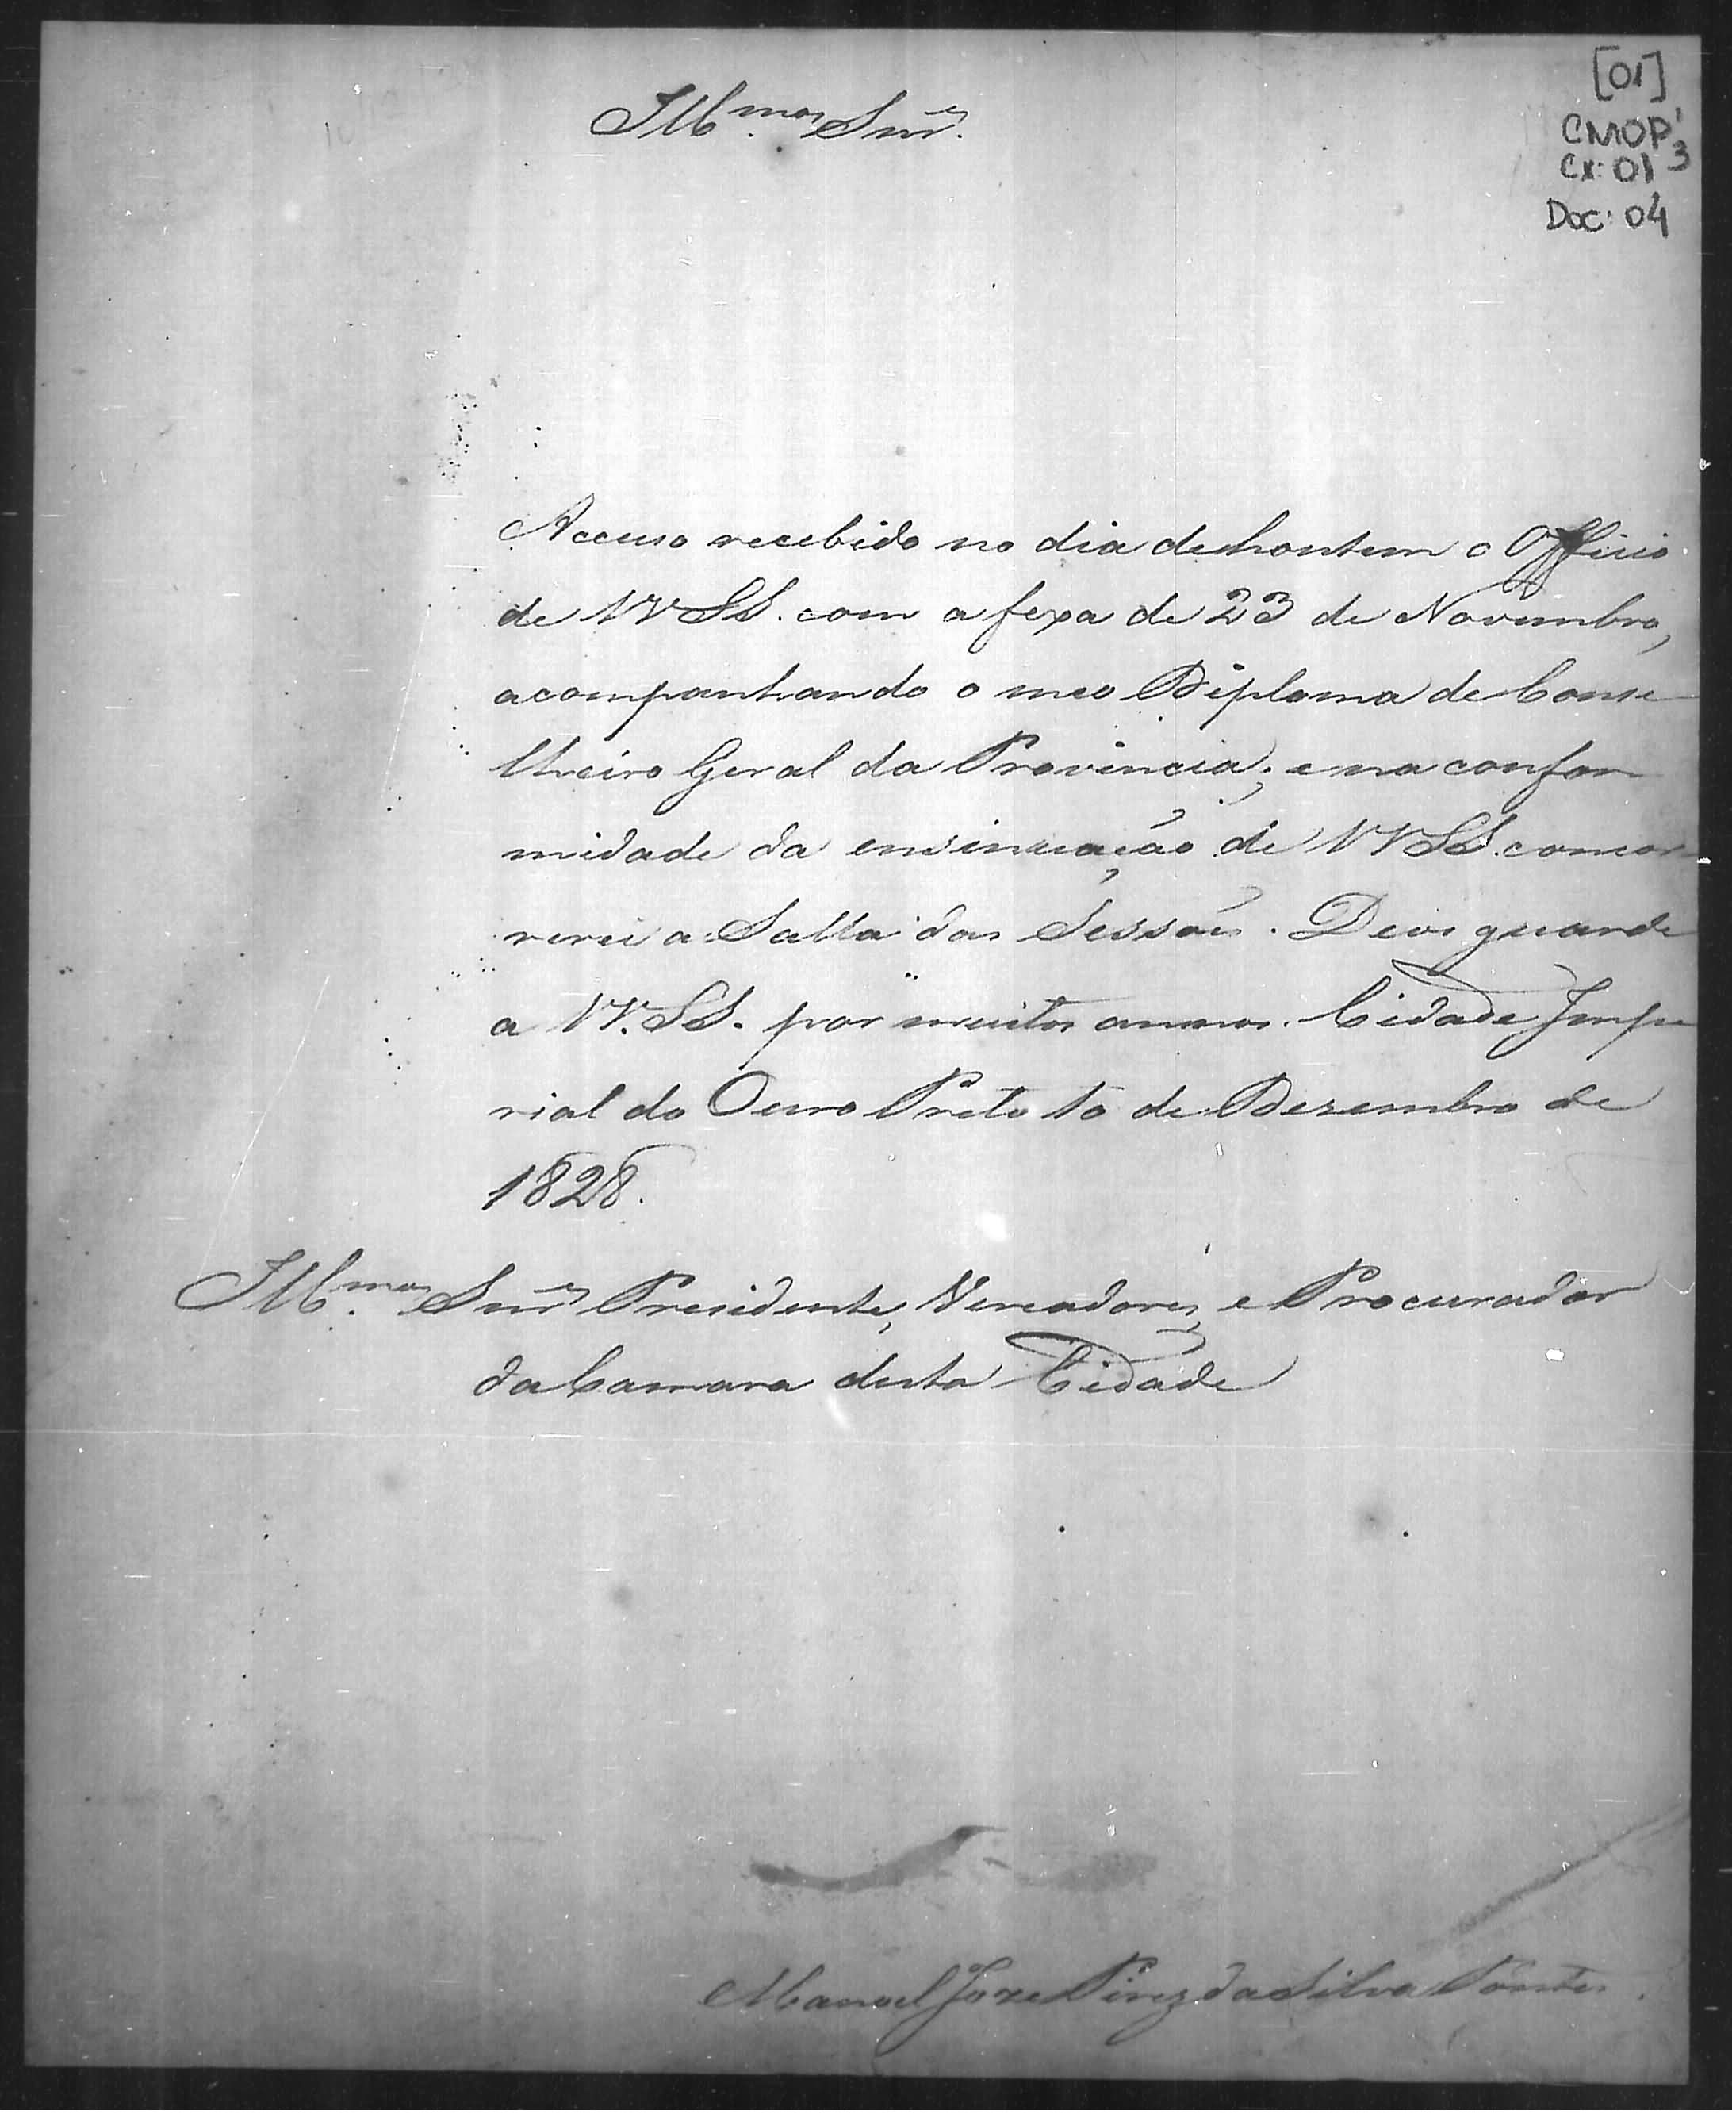 [01]
CMOP
Cx: 01 3
Doc: 04
Illmos Snrs.
Accuso recebido no dia dehontem o Officio
de VVSS. com a fexa de 23 de Novembro,
acompanhando o meo Diploma de Conse
lheiro Geral da Provincia; e na confor
midade da ensinuação de VVSS. concor
rerei a Salla das Sessões. Deos guarde
a VV.SS. por muitos annos. Cidade Impe
rial do Ouro Preto 10 de Dezembro de
1828.
Illmos Snrs Presidente, Vereadores, e Procurador
da Camara desta Cidade
Manoel Joze Pirez da Silva Pontes